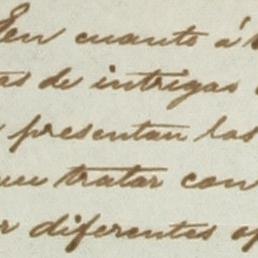 En cuanto á
de intrigas
presentan las
tratar con
diferentes